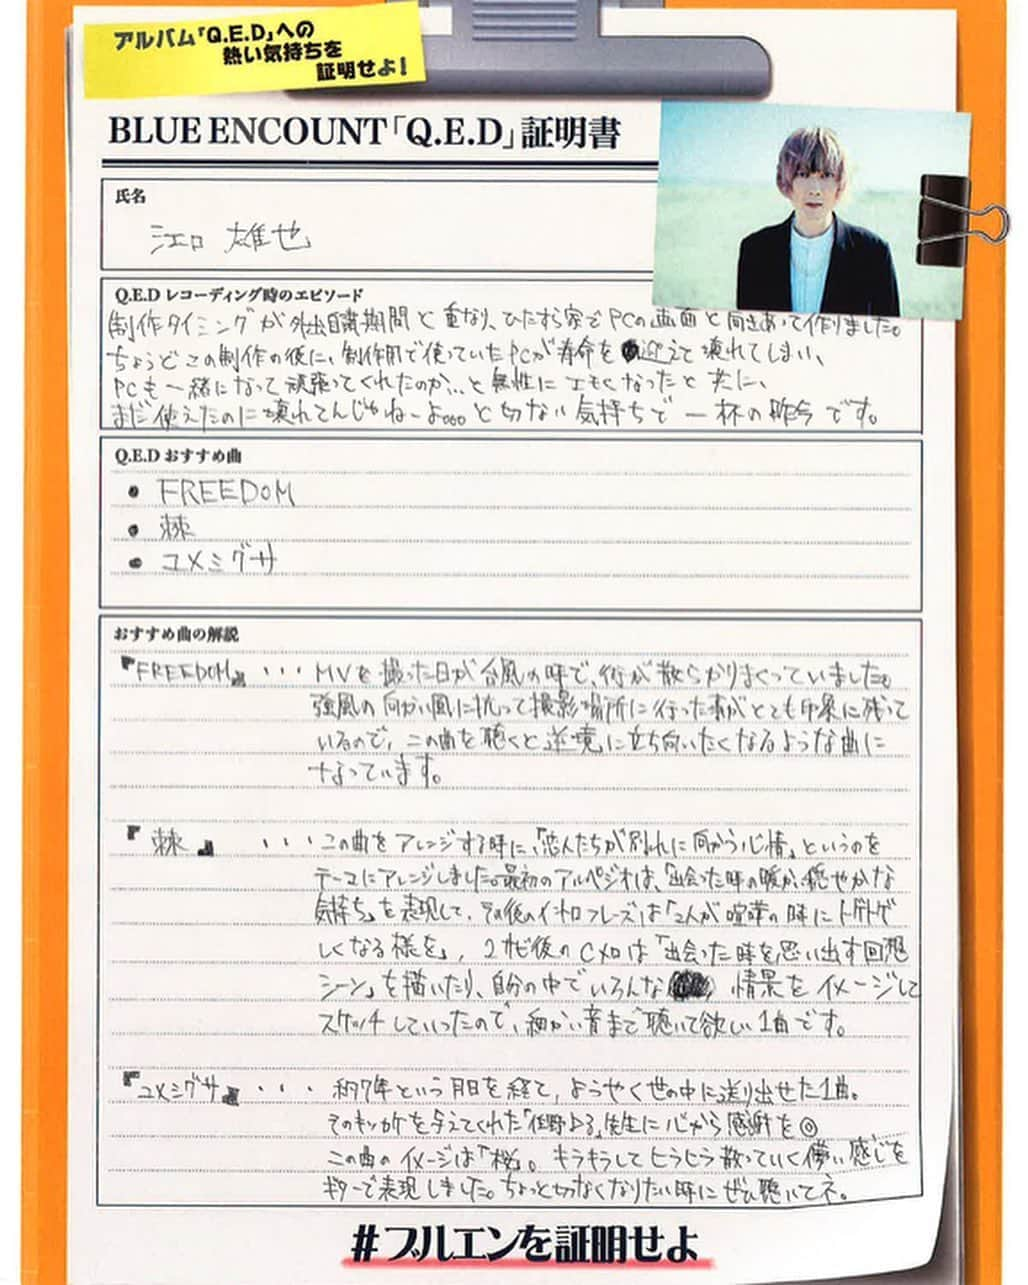 アルバム「Q.E.D」への
熱い気持ちを
証明せよ!
BLUE ENCOUNT「Q.E.D」証明書
氏名
江口 雄也
Q.E.D レコーディング時のエピソード
制作タイミングが外出自粛期間と重なり、ひたすら家でPCの画面と向きあって作りました。
ちょうどこの制作の後に、制作用で使っていたPCが寿命を迎えて壊れてしまい、
PCも一緒になって頑張ってくれたのか...と無性にエモくなったと共に、
まだ使えたのに壊れてんじゃねーよ。。。と切ない気持ちで一杯の昨今です。
Q.E.D おすすめ曲
• FREEDOM
• 棘
• ユメミグサ
おすすめ曲の解説
『FREEDOM』・・・MVを撮った日が台風の時で、街が散らかりまくっていました。
強風の向かい風に抗って撮影場所に行った事がとても印象に残って
いるので、この曲を聴くと逆境に立ち向いたくなるような曲に
なっています。
『棘』・・・この曲をアレンジする時に、「恋人たちが別れに向かう心情」というのを
テーマにアレンジしました。最初のアルペジオは、「出会った時の暖か、穏やかな
気持ち」を表現して、その後のイントロフレーズは「2人が喧嘩の時にトゲトゲ
しくなる様を」、2サビ後のCメロは「出会った時を思い出す回想
シーン」を描いたり、自分の中でいろんな情景をイメージして
スケッチしていったので、細かい音まで聴いて欲しい1曲です。
『ユメミグサ』・・・約7年という月日を経て、ようやく世の中に送り出せた1曲。
そのキッカケを与えてくれた「住野よる」先生に心から感謝を◎
この曲のイメージは「桜」。キラキラしてヒラヒラ散っていく儚い感じを
ギターで表現しました。ちょっと切なくなりたい時にぜひ聴いてネ。
#ブルエンを証明せよ